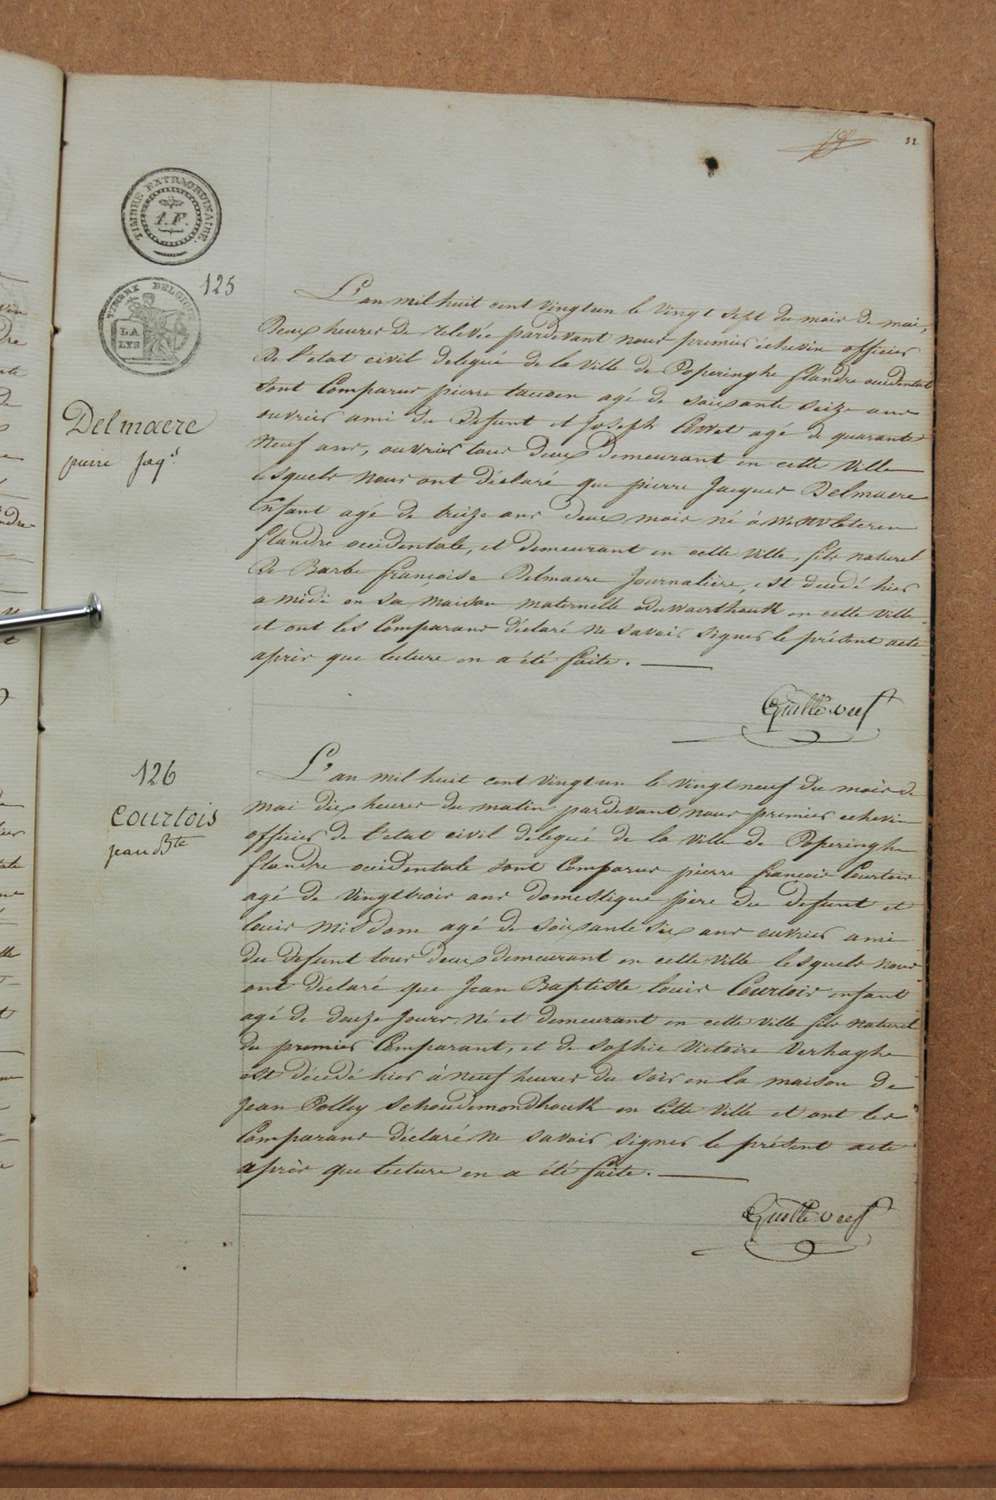 52
TIMBRE EXTRAORDINAIRE
1.F.
TIMBRE BELGIQUE
LA
LYS
125
Delmaere
pierre Jaqs
L'an mil huit cent vingt un le vingt sept du mois de mai,
Deux heures de relevée pardevant nous premier échevin officier
De l'etat civil delegué de la Ville de Poperinghe flandre occidentale
sont Comparus pierre agé de soixante seize ans
ouvrier ami du Defunt et Joseph agé de quarante
Neuf ans, ouvrier tous deux demeurant en cette Ville
lesquels nous ont déclaré que pierre Jacques Delmaere
Enfant agé de treize ans deux mois né à Westvleteren
flandre occidentale, et demeurant en cette Ville, fils naturel
De Barbe françoise Delmaere Journalière, est decedé hier
a midi en sa maison maternelle en cette Ville
et ont les Comparans déclaré ne savoir signer le présent acte
après que lecture en a été faite.
126
Courtois
jean Bte
L'an mil huit cent vingt un le vingt neuf du mois de
mai dix heures du matin pardevant nous premier echevin
officier de l'etat civil delegué de la Ville de Poperinghe
flandre occidentale sont Comparus pierre françois Courtois
agé de vingt trois ans domestique père du defunt et
louis Misdom agé de soixante six ans ouvrier ami
du defunt tous deux demeurant en cette Ville lesquels nous
ont déclaré que Jean Baptiste louis Courtois enfant
agé de douze jours, né et demeurant en cette Ville fils naturel
du premier Comparant, et de sophie victoire Verhaghe
est décédé hier à neuf heures du soir en la maison de
Jean Polley Schoudemondhouk en cette Ville et ont les
Comparans déclaré ne savoir signer le présent acte
après que lecture en a été faite.